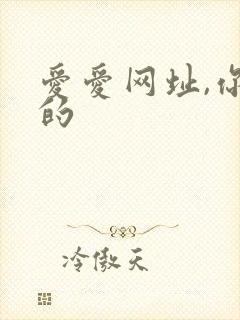 爱爱网址,你
的
冷傲天